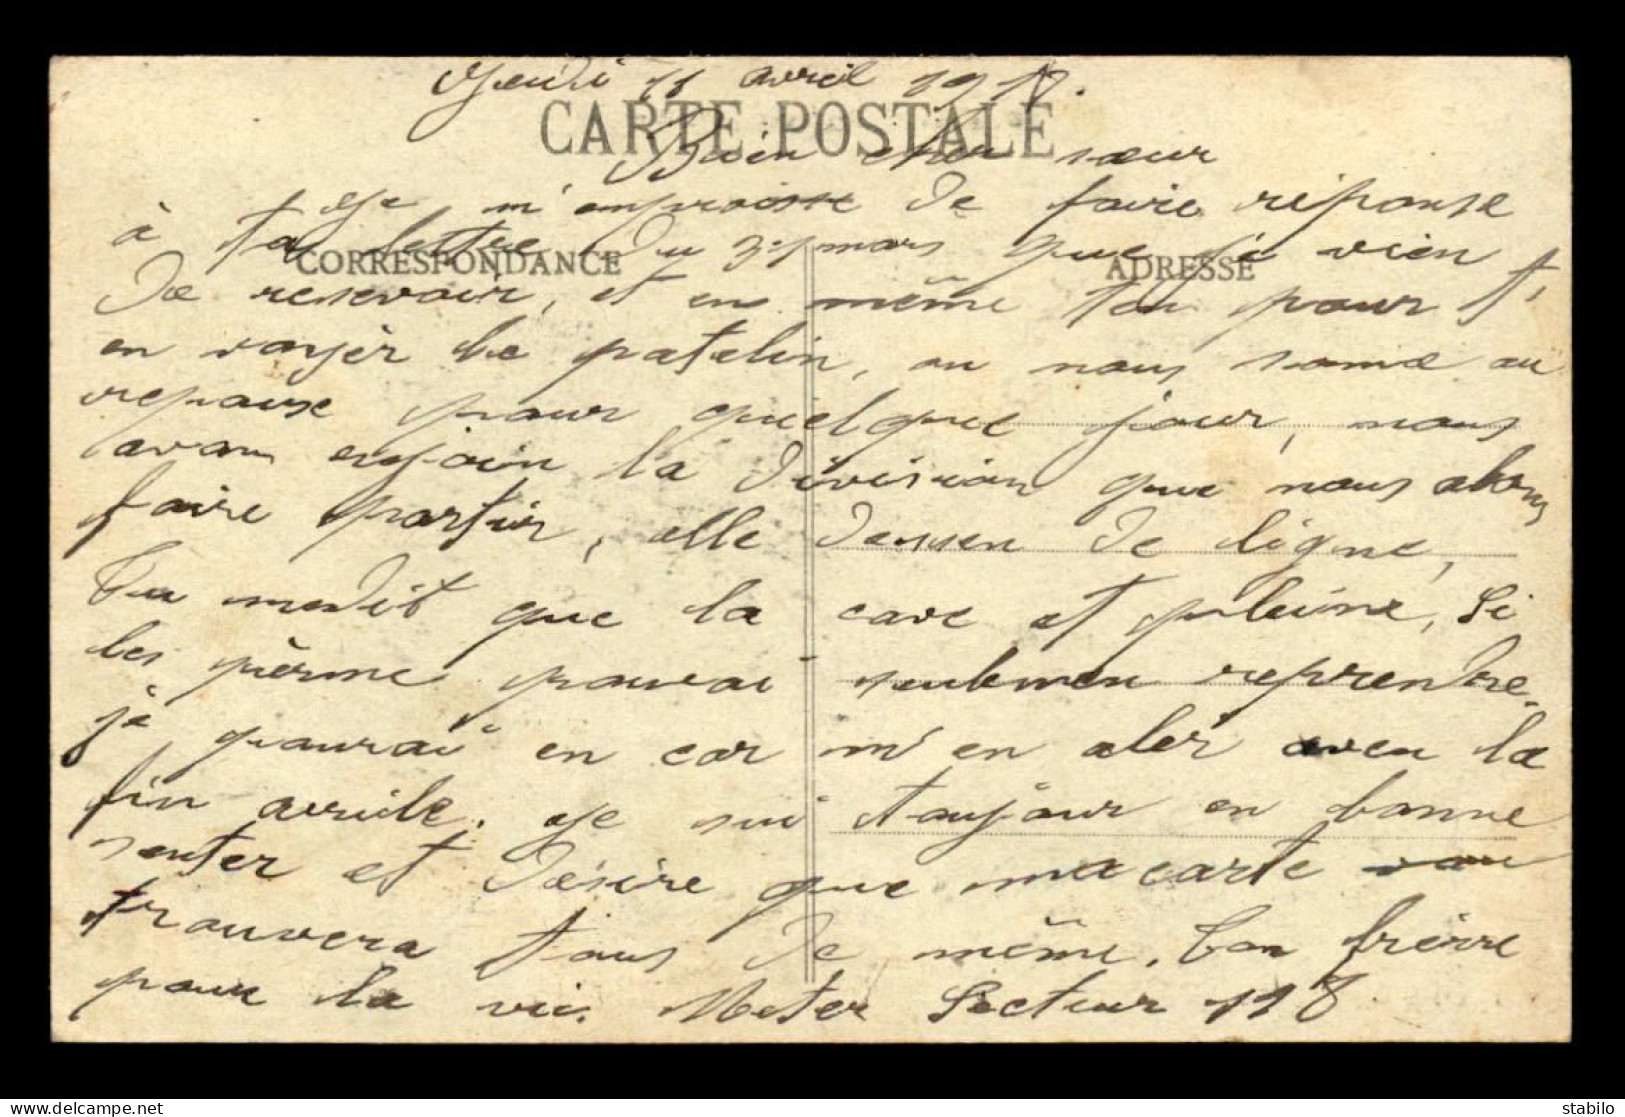 Jeudi 11 avril 1918.
CARTE POSTALE
Bien cher sœur
Je m'enpraisse de faire réponse
à ta lettre du mars que je vien
CORRESPONDANCE
ADRESSE
de resevoir, et en même ten pour t'
en voyèr le patelin, ou nous some au
repause pour quelque jour, nous
avan rejoin la division que nous alons
faire partir, elle dessen de ligne,
Tu medit que la cave et pleine, Si
les pèrme pouvai seulemen reprendre
je pourai en car m'en alèr aven la
fin avrile. Je sui toujour en bonne
senter et désire que ma carte vou
trouvera tous de même. Ton frèrre
pour la vie. Meter Secteur 118
stabilo
© www.delcampe.net